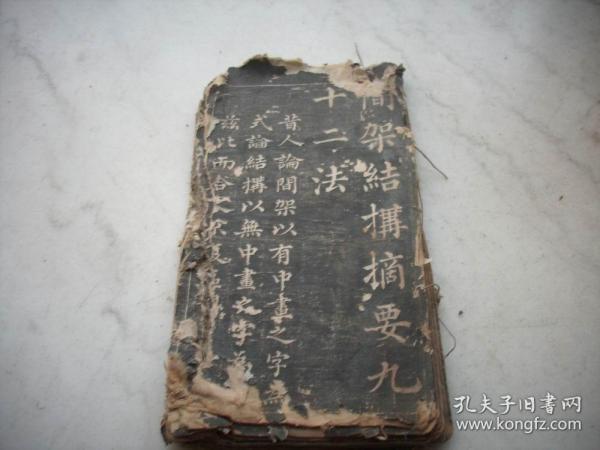 間架結搆摘要九
十二法
昔人論間架以有中畫之字為
式論結搆以無中畫之字為
茲比而合
孔夫子旧书网
www.kongfz.com